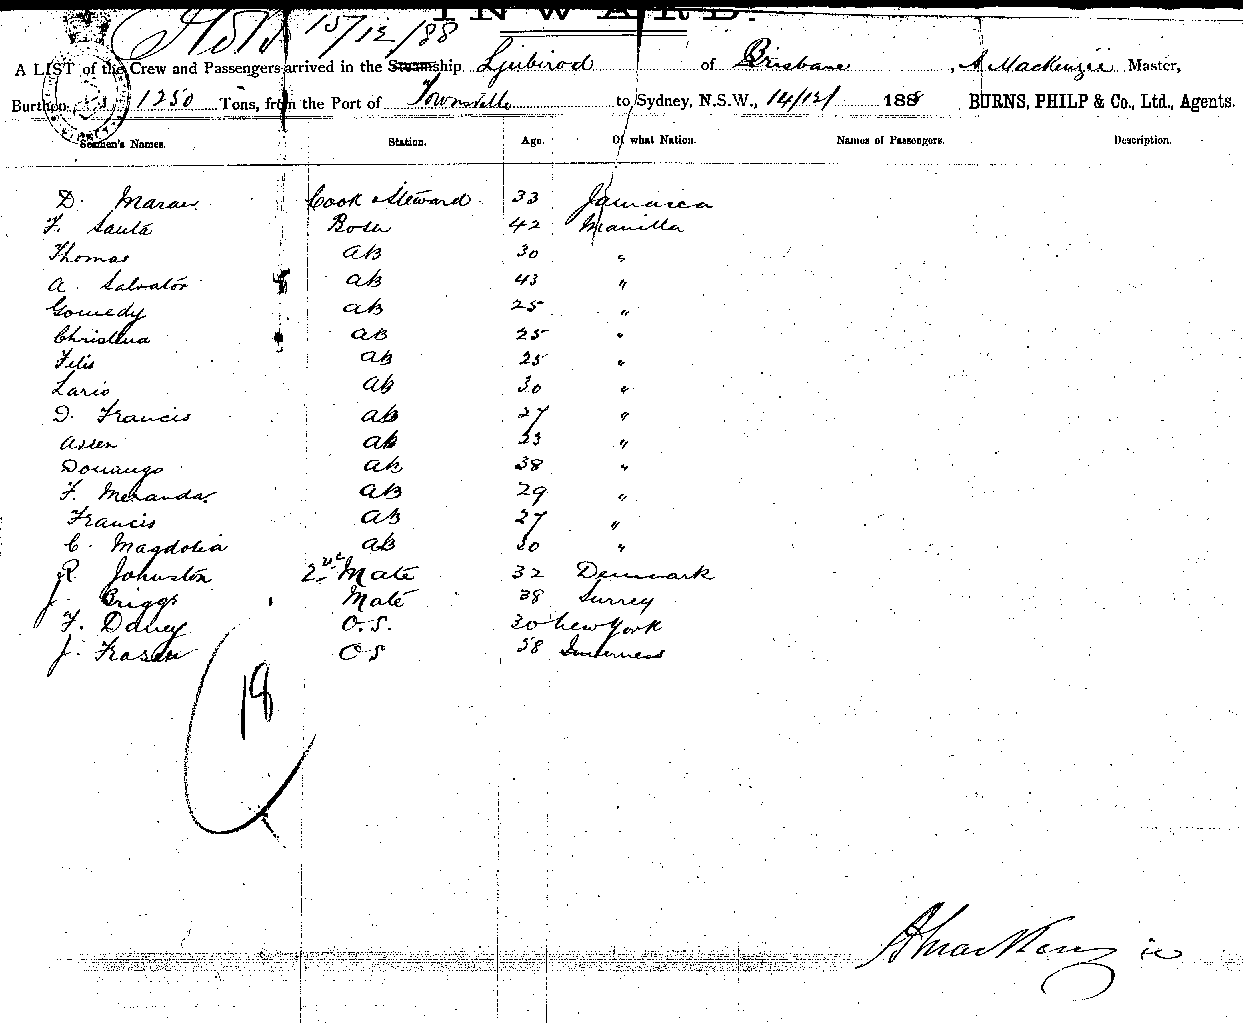 INWARD.
15/12/88
A LIST of the Crew and Passengers arrived in the Steamship Ljubirod of Brisbane, A MacKenzie Master,
Burthen 1250 Tons, from the Port of Townsville to Sydney, N.S.W., 14/12/ 1888 BURNS, PHILP & Co., Ltd., Agents.
Seamen's Names. Station. Age. Of what Nation. Names of Passengers. Description.
D. Cook & Steward 33 Jamaica
F. Santa Bosn 42 Manilla
Thomas AB 30 "
A. Salvator AB 43 "
Gomedy AB 25 "
Christina AB 25 "
Felis AB 25 "
Lario AB 30 "
D. Francis AB 27 "
Assen AB 23 "
AB 38 "
F. Meranda AB 29 "
Francis AB 27 "
C. AB 30 "
R. Johnston 2nd Mate 32 Denmark
J. Briggs Mate 38 Surrey
F. Davey O.S. 30 New York
J. Fraser OS 58 Inverness
18
A MacKenzie